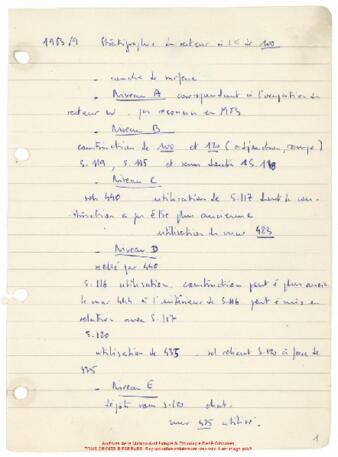 1983/9 Stratigraphie du secteur à l'E de 100
- couche de surface
- Niveau A correspondant à l'occupation du
secteur W. pas reconnu en M83
- Niveau B
construction de 100 et 120 (adjonction, rampe)
S.119, S.115 et sous dents
- Niveau C
sols 440 utilisation de S.117 dont la con-
struction a pu être plus ancienne
utilisation du mur 423
- Niveau D
scellé par 440
S.116 utilisation, construction peut-ê plus ancien
le mur 444 à l'intérieur de S.116 peut-ê mis en
relation avec S.117
S.120
utilisation de 435, sol reliant S.120 à face de
435
- Niveau E
dépôts sous S.120
mur 435 utilisé.
1
Archives de la Maison Archéologie & Ethnologie René-Ginouvès
TOUS DROITS RESERVES